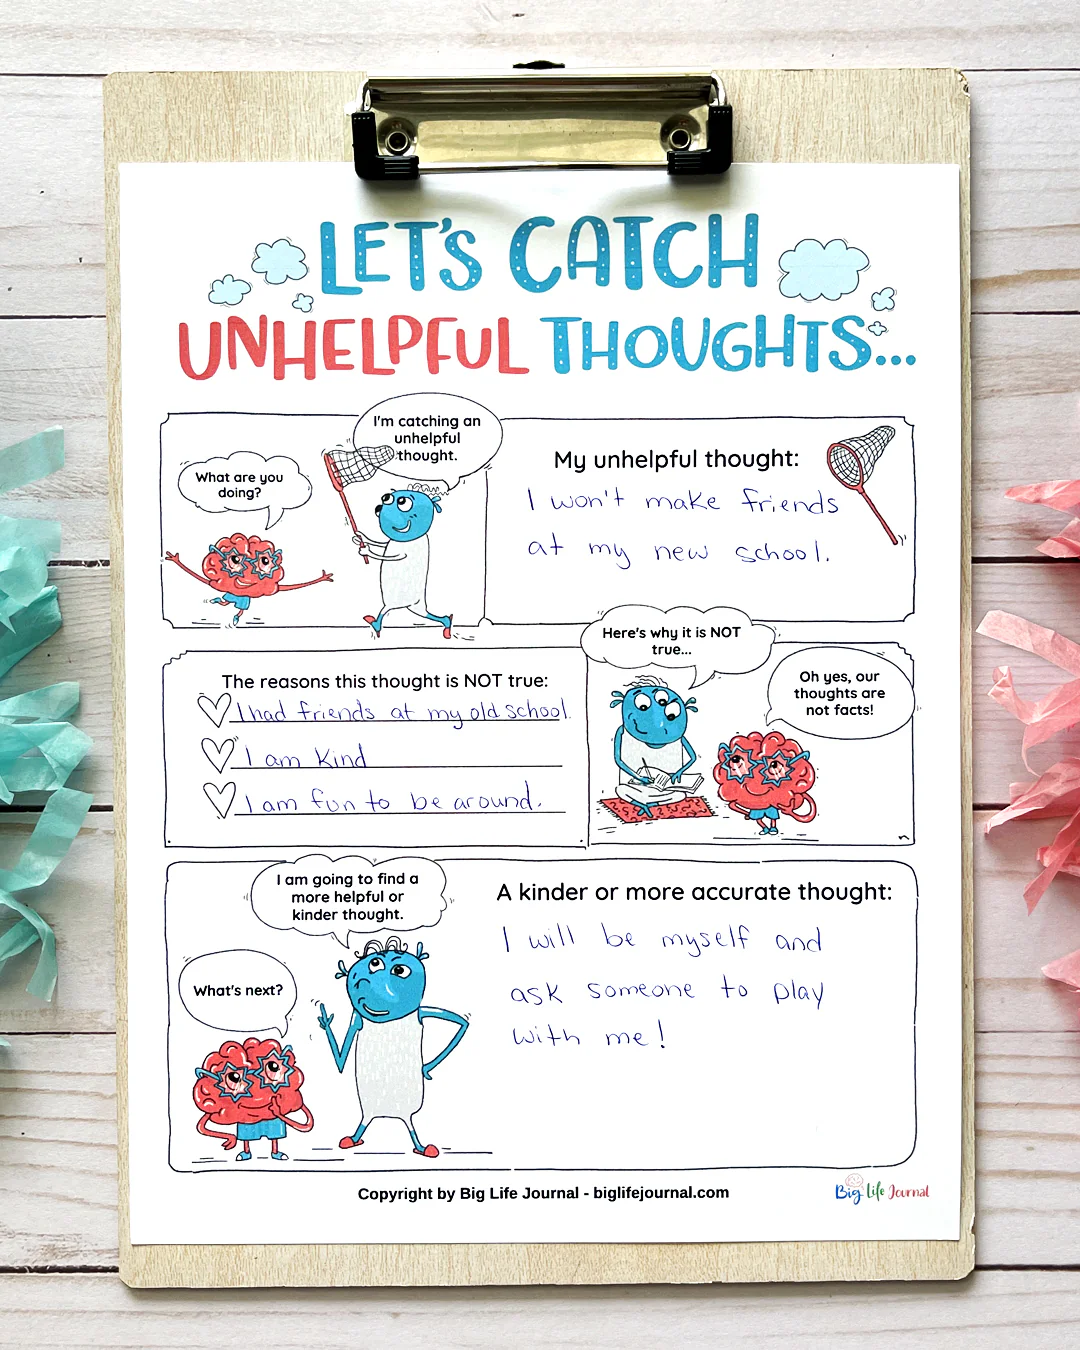 LET'S CATCH
UNHELPFUL THOUGHTS...
What are you
doing?
I'm catching an
unhelpful
thought.
My unhelpful thought:
I won't make friends
at my new school.
The reasons this thought is NOT true:
I had friends at my old school.
I am kind
I am fun to be around.
Here's why it is NOT
true...
Oh yes, our
thoughts are
not facts!
I am going to find a
more helpful or
kinder thought.
What's next?
A kinder or more accurate thought:
I will be myself and
ask someone to play
with me!
Copyright by Big Life Journal - biglifejournal.com
Big Life Journal